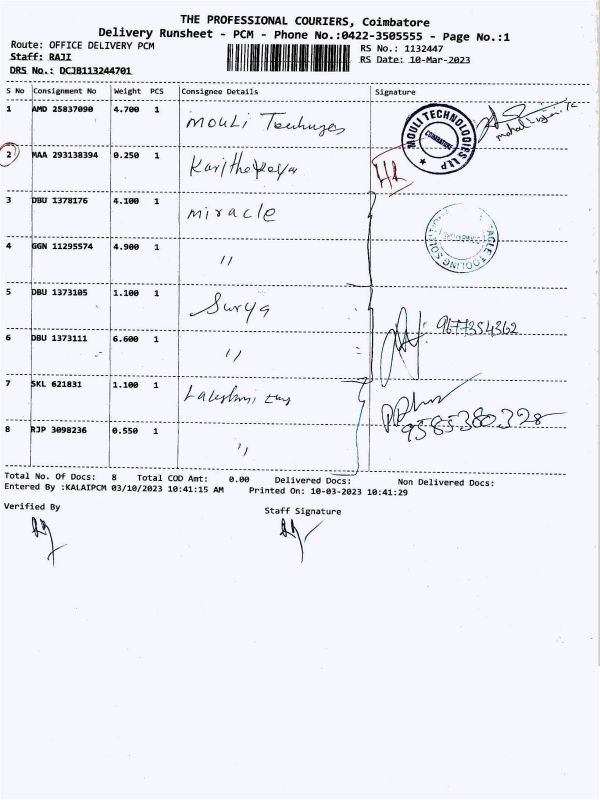 THE PROFESSIONAL COURIERS, Coimbatore
Delivery Runsheet - PCM - Phone No.:0422-3505555 - Page No.:1
Route: OFFICE DELIVERY PCM
RS No.: 1132447
Staff: RAJI
RS Date: 10-Mar-2023
DRS No.: DCJB113244701
S No Consignment No Weight PCS Consignee Details Signature
1 AMD 25837090 4.700 1 MOULI
MOULI TECHNOLOGIES LLP COIMBATORE
2 MAA 293138394 0.250 1
3 DBU 1378176 4.100 1 miracle
TOOLING SOLUTIONS
4 GGN 11295574 4.900 1 "
5 DBU 1373105 1.100 1 Surya
9677354362
6 DBU 1373111 6.600 1 "
7 SKL 621831 1.100 1 Lakshmi
9585380328
8 RJP 3098236 0.550 1 "
Total No. Of Docs: 8 Total COD Amt: 0.00 Delivered Docs: Non Delivered Docs:
Entered By :KALAIPCM 03/10/2023 10:41:15 AM Printed On: 10-03-2023 10:41:29
Verified By
Staff Signature